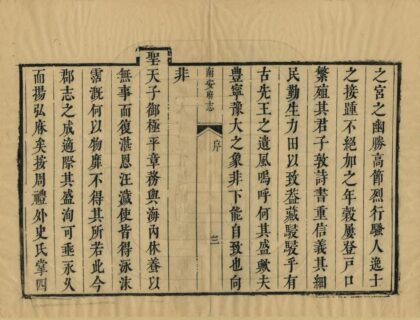 之宮之幽勝高節烈行騷人逸士
之接踵不絕加之年穀屢登戶口
繁殖其君子敦詩書重信義其細
民勤生力田以致蓋藏駸駸乎有
古先王之遺風嗚呼何其盛歟夫
豐寧豫大之象非下能自致也向
非
南安府志
序
三
聖天子御極平章務與海內休養以
無事而復湛恩汪濊使皆得泳沫
霑溉何以物靡不得其所若此今
郡志之成適際其盛洵可垂永久
而揚弘庥矣按周禮外史氏掌四